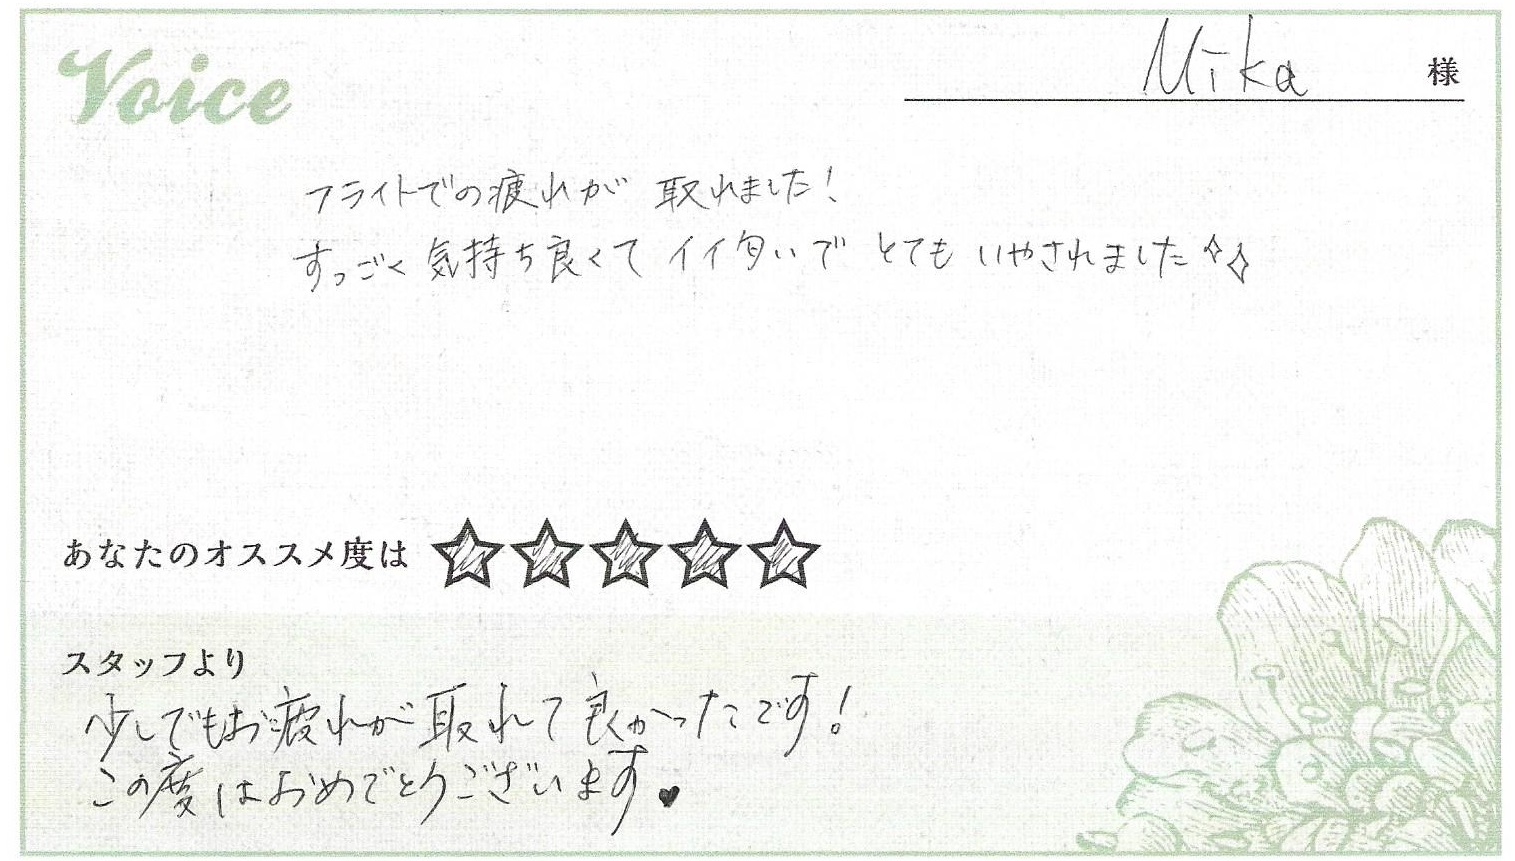 Voice
Mika 様
フライトでの疲れが 取れました!
すっごく 気持ち良くて イイ匂いで とても いやされました✧✧
あなたのオススメ度は ☆☆☆☆☆
スタッフより
少しでもお疲れが取れて良かったです!
この度はおめでとうございます♥